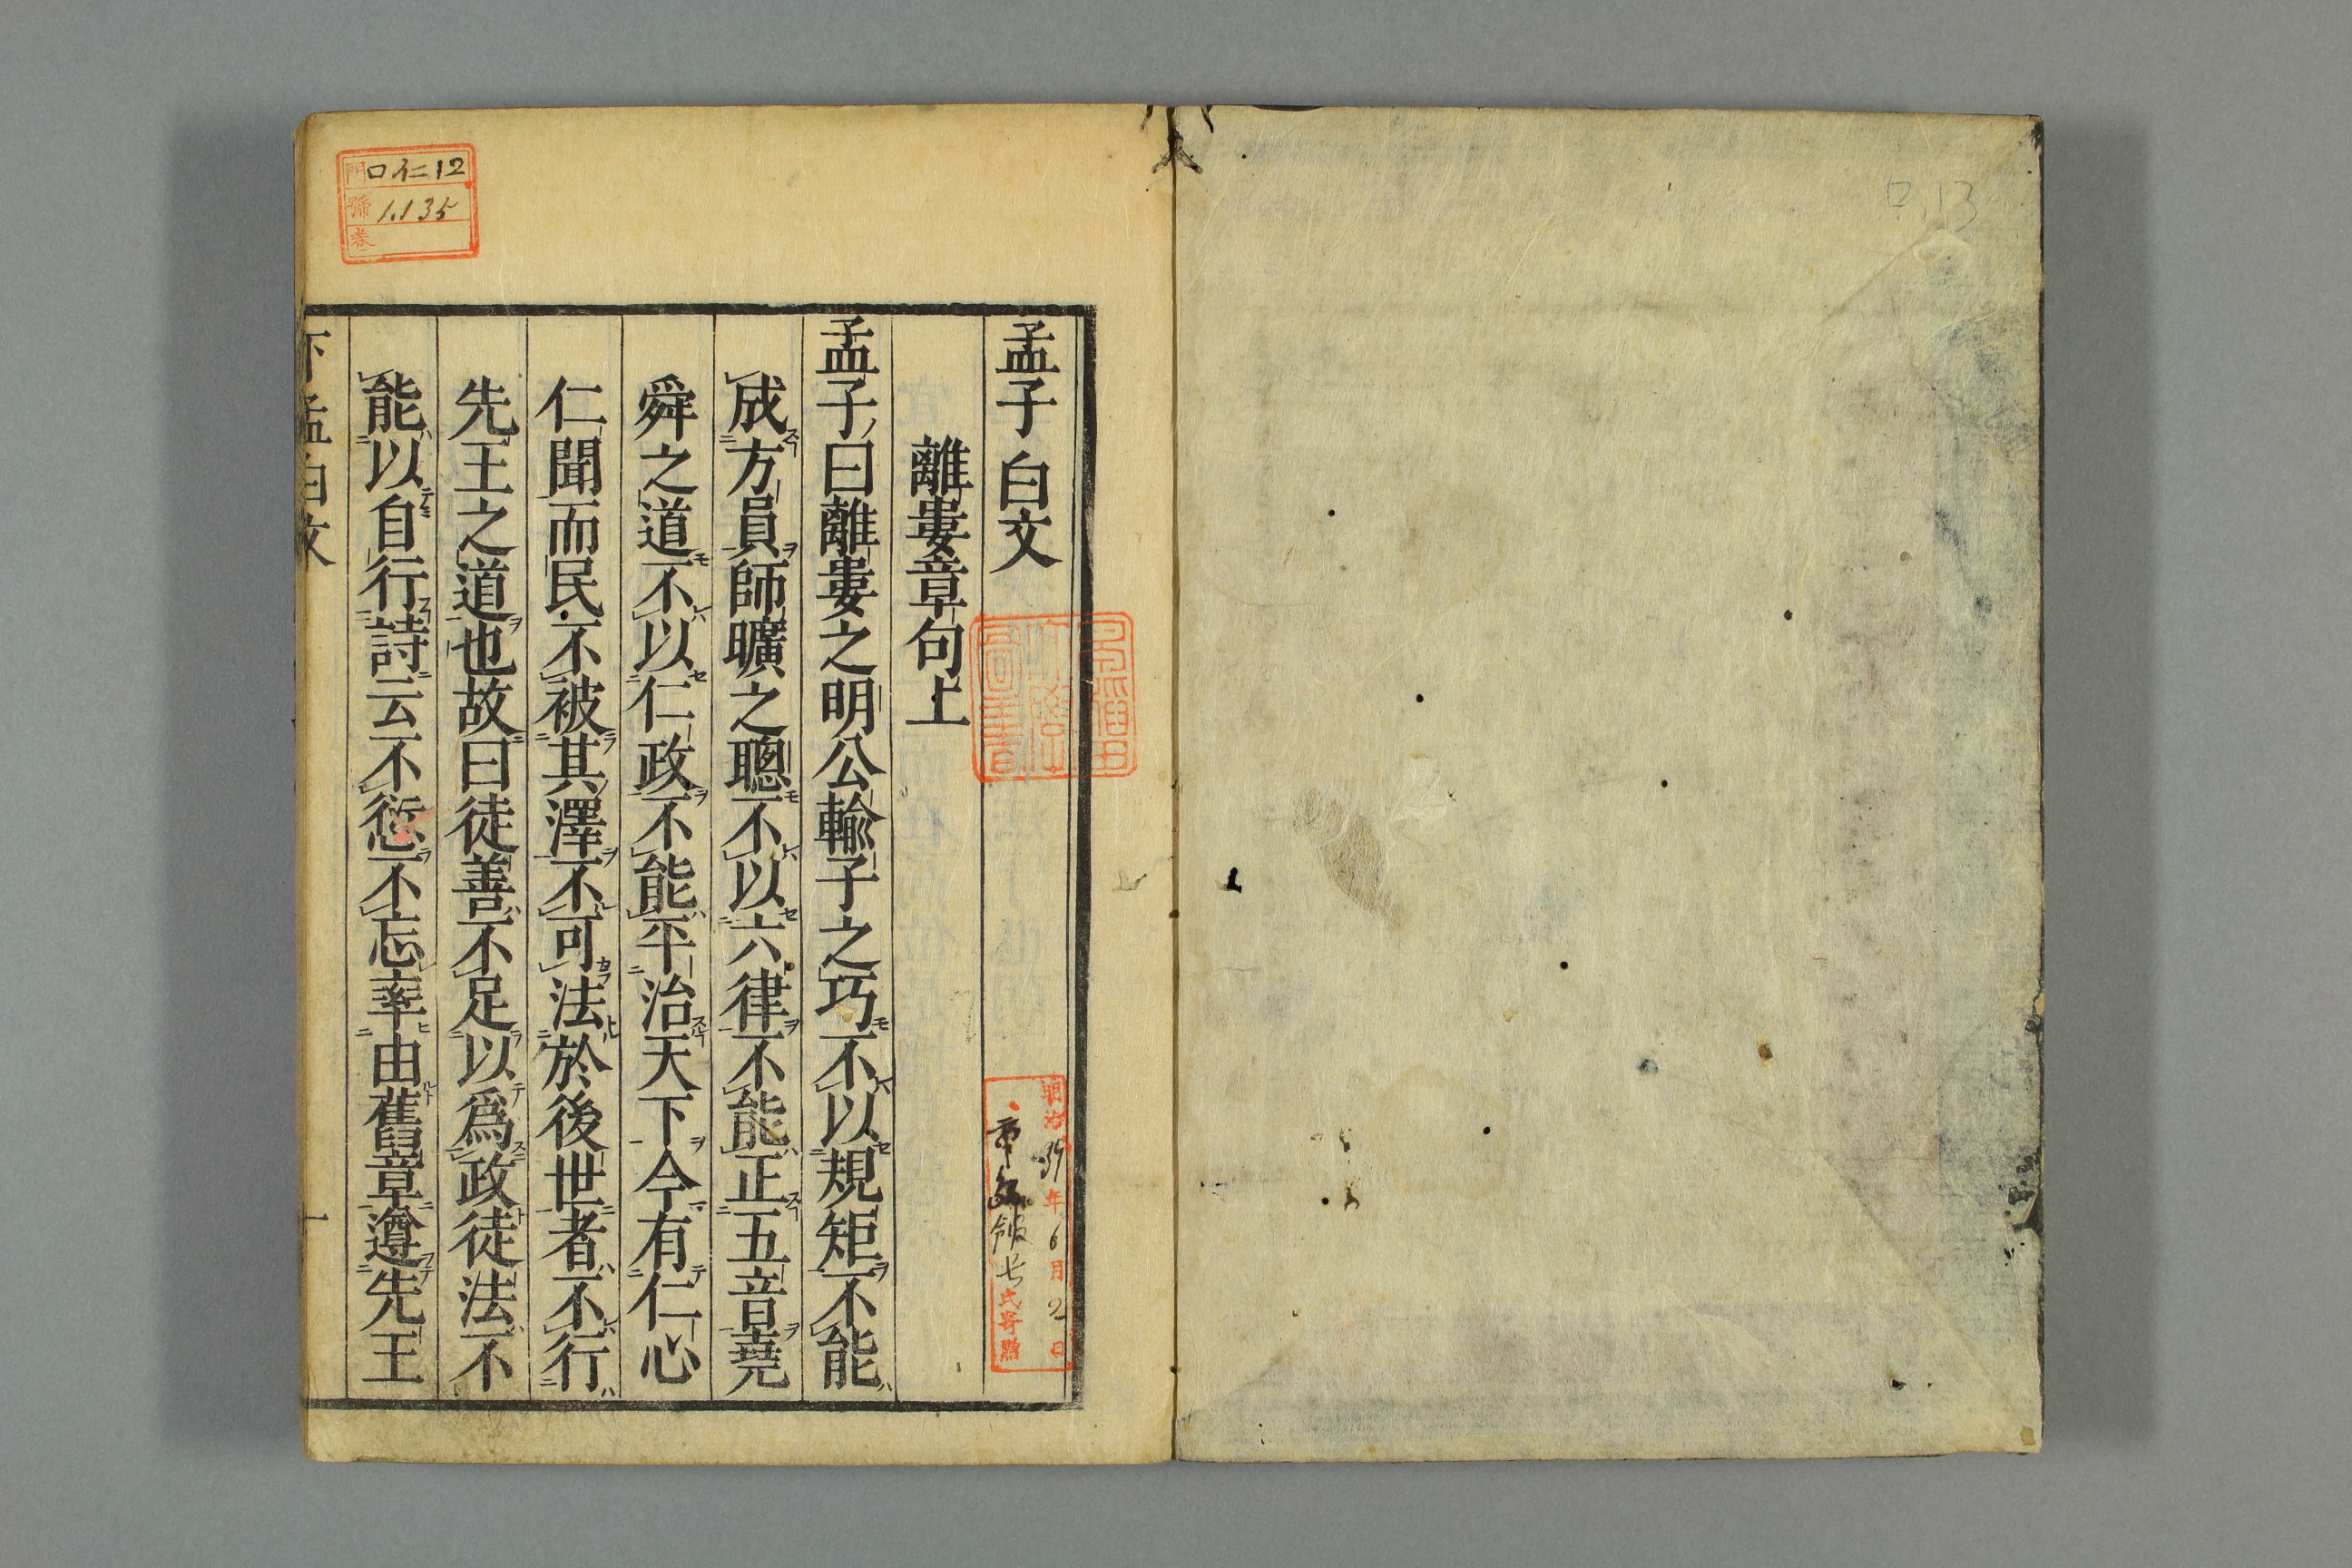 孟子白文
離婁章句上
孟子曰離婁之明公輸子之巧不以規矩不能
成方員師曠之聰不以六律不能正五音堯
舜之道不以仁政不能平治天下今有仁心
仁聞而民不被其澤不可法於後世者不行
先王之道也故曰徒善不足以爲政徒法不
能以自行詩云不愆不忘率由舊章遵先王
下孟白文 一
門 口仁12
號 1.135
卷
明治39年6月2日
氏寄贈